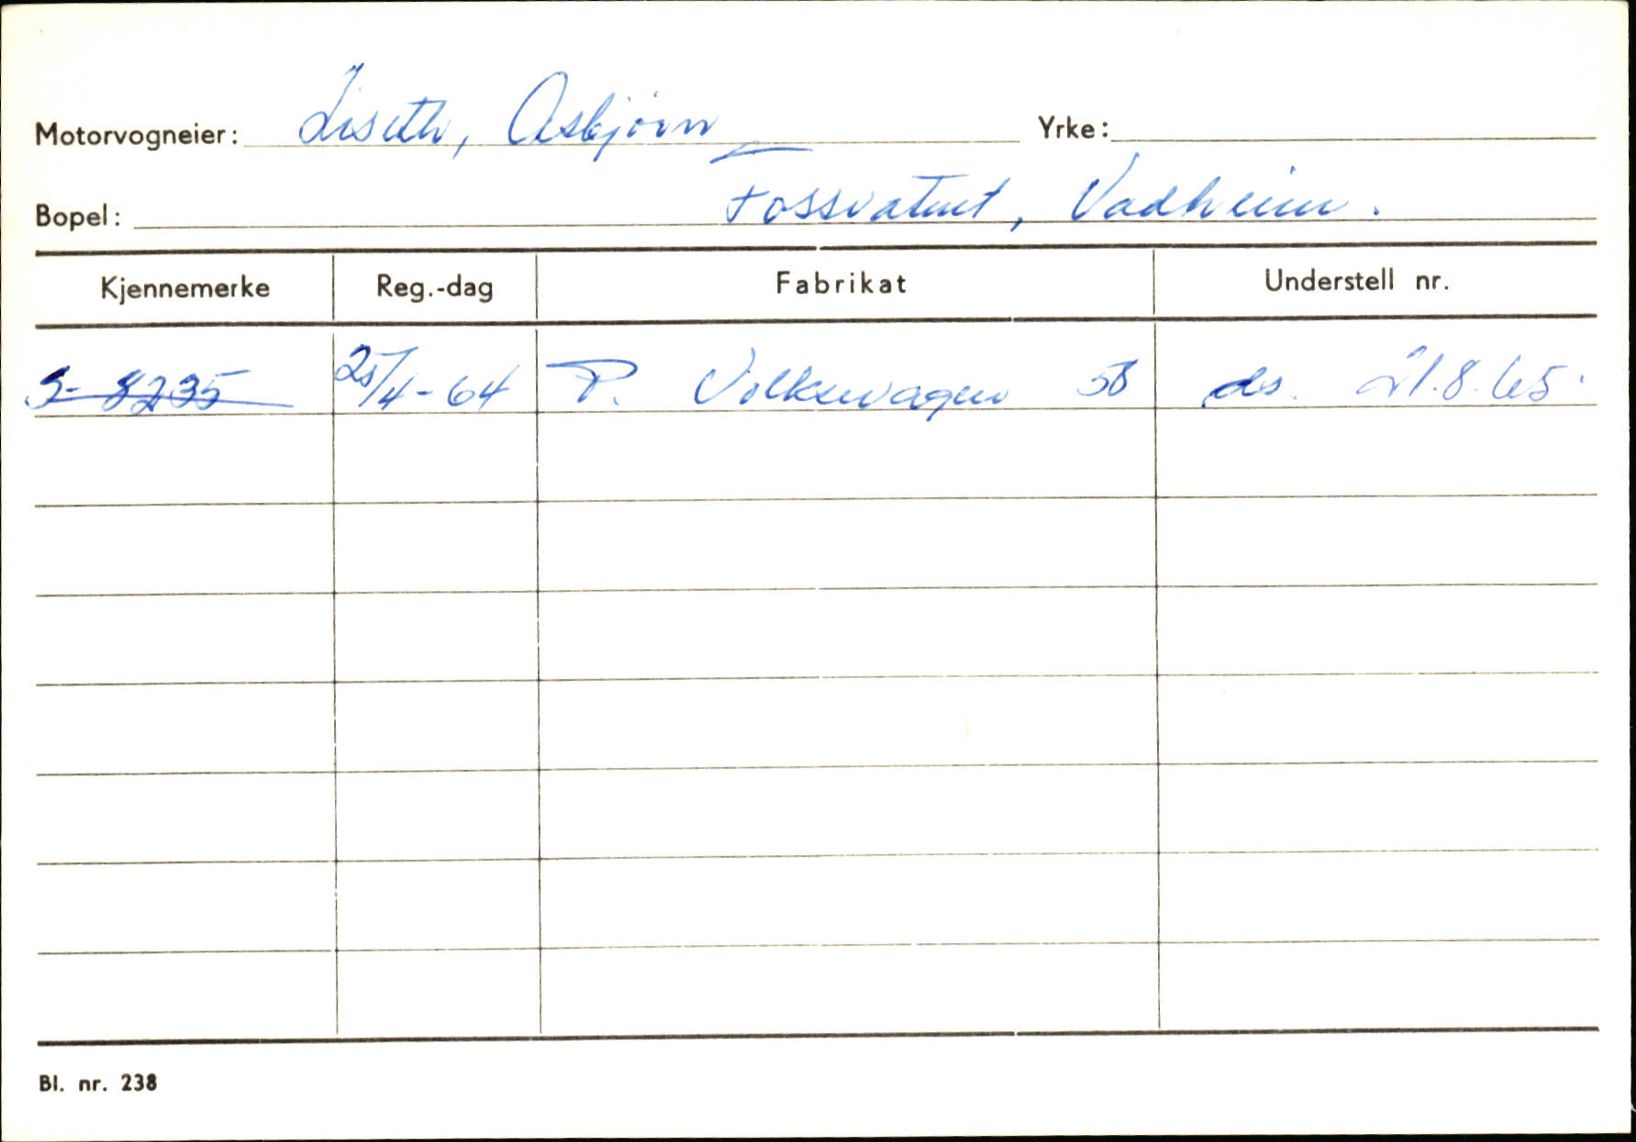 Motorvogneier: Liseth, Asbjørn Yrke:
Bopel: Fossvatnet, Vadheim.
Kjennemerke Reg.-dag Fabrikat Understell nr.
S-8235 25/4-64 P. Volkswagen 58 ds. 21.8.65.
Bl. nr. 238